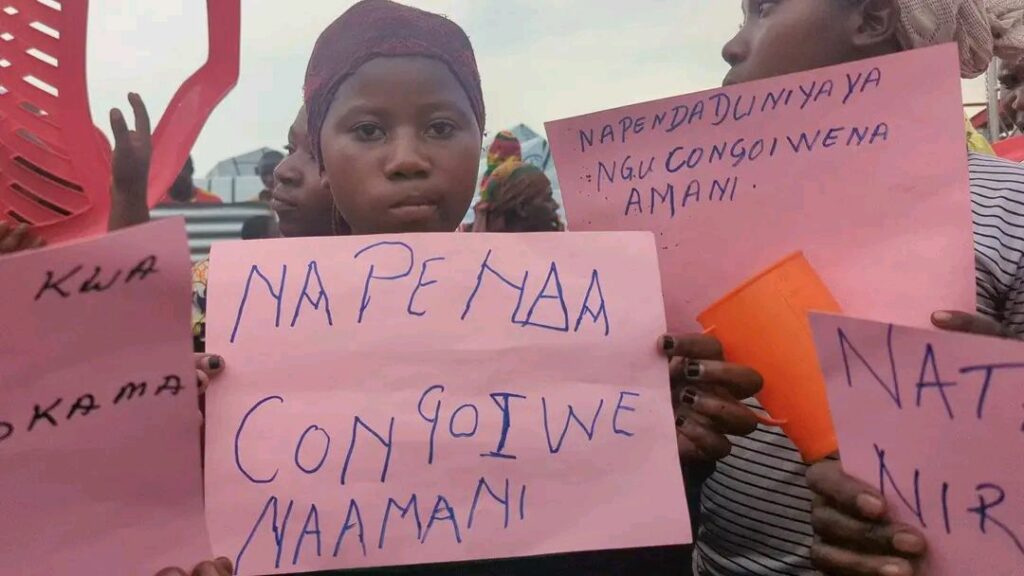 KWA
OKAMA
NAPENDA
CONGOIWE
NAAMANI
NAPENDADUNIYAYA
NGUCONGOIWENA
AMANI.
NAT
NIR